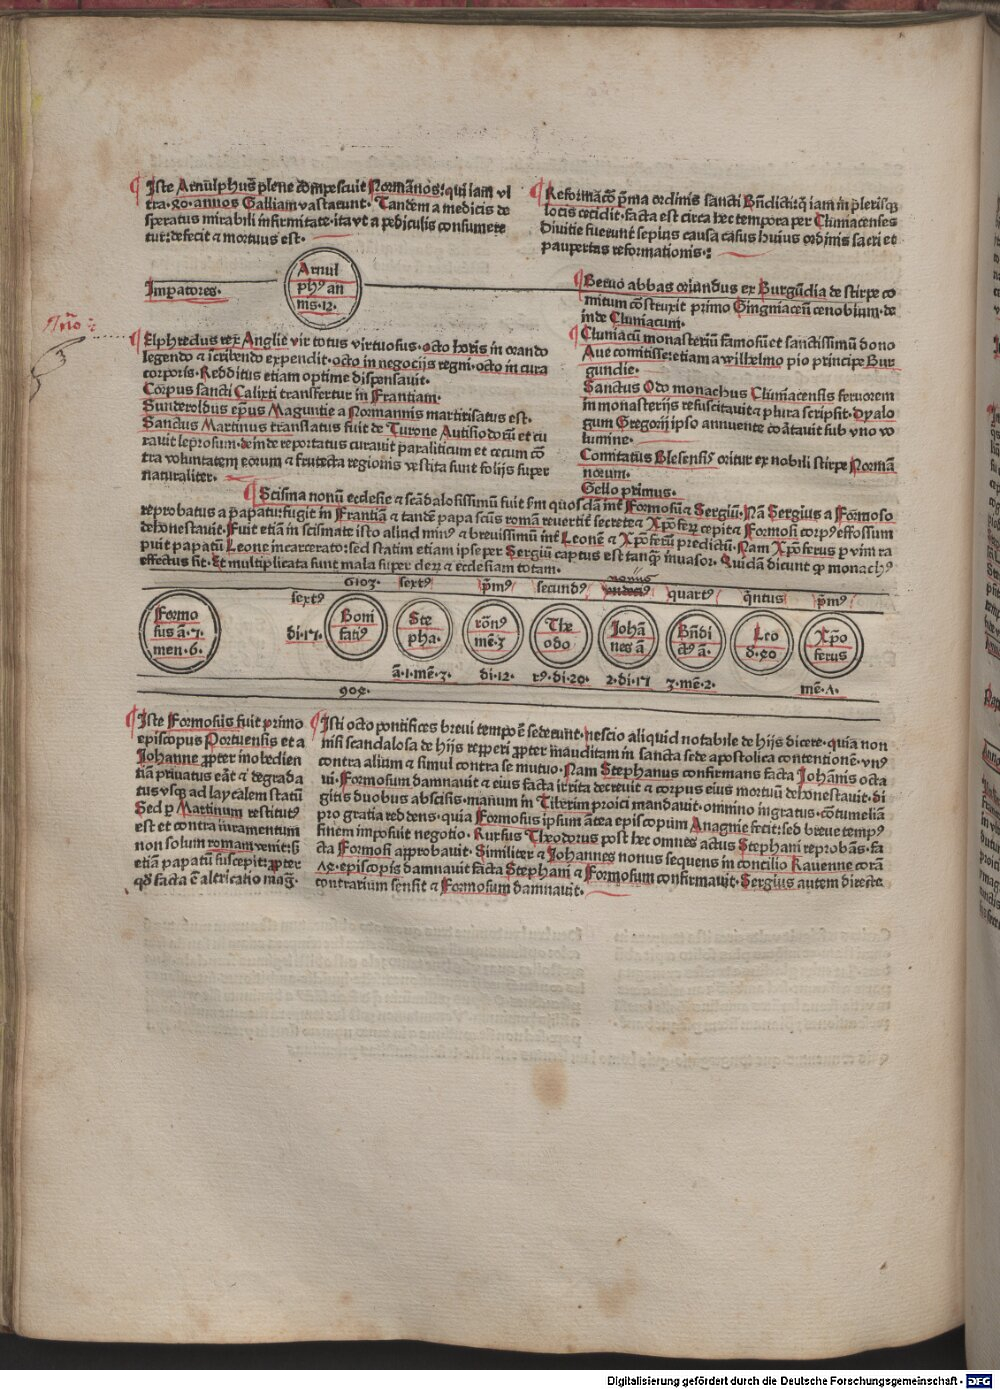 Iste Arnulphus̄ plene cōmpescuit Normānos: qui iam vl
tra·80·annos Galliam vastarunt· Tandem a medicis de
speratus mirabili infirmitate·ita vt a pediculis consumere
tur: defecit & mortuus est·
Reformacō p̄ma ordinis sancti Bn̄dicti: q̇ iam in pleriſq̃
locis cecidit·facta est circa hec tempora per Cluniacenses
Diuitie fuerunt sepius causa casus huius ordinis sacri et
paupertas reformationis·:
Arnul
phꝰ an
nis·12·
Imp̄atores·
Berno abbas oriundus ex Burgūdia de stirpe co
mitum cōstruxit primo Gingniacēn cenobium·de
inde Cluniacum·
Cluniacū monasteriū famosū et sanctissimū dono
Aue comitisse: etiam a wilhelmo pio principe Bur
gundie·
Sanctus Odo monachus Cluniacensis feruorem
in monasterijs resuscitauit & plura scripsit· Dyalo
gum Gregorij ipso annuente coātauit sub vno vo
lumine·
Comitatus Blesensis oritur ex nobili stirpe Normā
norum·
Gello primus·
Elphredus rex Anglie vir totus virtuosus·octo horis in orando
legendo & scribendo expendit·octo in negocijs regni·octo in cura
corporis· Redditus etiam optime dispensauit·
Corpus sancti Calixti transfertur in Frantiam·
Sunderoldus ep̄us Maguntie a Normannis martirisatus est·
Sanctus Martinus translatus fuit de Turone Autisiodorū et cu
rauit leprosum·deinde reportatus curauit paraliticum et cecum cō
tra voluntatem eorum & frutecta regionis vestita sunt folijs super
naturaliter·
Scisma nonū ecclesie & scādalosissimū fuit s̄m quosdā int̄ Formosū & Sergiū· Nā Sergius a Formoso
reprobatus a papatu: fugit in Frantiā & tandē papa scūs romā reuertit̄ secrete & Xp̄oferꝝ cepit & Formosi corpꝰ effossum
dehonestauit· Fuit etiā in scismate isto aliud minꝰ & breuissimū int̄ Leonē & Xp̄oferū predictū· Nam Xp̄oferus p vim ra
puit papatū Leone incarcerato: sed statim etiam ipse per Sergiū captus est tanq̄ inuasor· Quidā dicunt ꝙ monachꝰ
effectus sit· Et multiplicata sunt mala super clerū & ecclesiam totam·
6103· sextꝰ p̄mꝰ secundꝰ nonus quartꝰ q̄ntus p̄mꝰ
sextꝰ
Formo
sus ā·7·
men·6·
di·17·
Boni
fatiꝰ
Ste
pha·
rōnꝰ
mē·3
The
odo
Johā
nes ā
Bn̄di
ctꝰ ā·
Leo
d·40
Xp̄o
ferus
ā·1·mē·3· di·12· 19·di·20· 2·di·17 3·mē·2· mē·7·
904·
Iste Formosus fuit primo
episcopus Portuensis et a
Johanne ꝓpter inobedien
tiā priuatus eāt & degrada
tus vsq̨ ad laycalem statū
Sed p Martinum restitutꝰ
est et contra iuramentum
non solum romam venit: sꝫ
etiā papatū suscepit: ꝓpter
qḋ facta ē altercatio mag·
Isti octo pontifices breui tempore sederunt·nescio aliquid notabile de hijs dicere·quia non
nisi scandalosa de hijs repperi ꝓpter inauditam in sancta sede apostolica contentionē·vnꝰ
contra alium & simul contra se mutuo· Nam Stephanus confirmans facta Johānis octa
ui· Formosum damnauit & eius facta irrita decreuit & corpus eius mortuū dehonestauit·di
gitis duobus abscisis·manum in Tiberim proici mandauit·omnino ingratus·cōtumeliā
pro gratia reddens·quia Formosus ipsum āntea episcopum Anagnie fecit: sed breue tempꝰ
finem imposuit negotio· Rursus Theodorus post hec omnes actus Stephani reprobās·fa
cta Formosi approbauit· Similiter & Johannes nonus sequens in concilio Rauenne corā
74·episcopis damnauit facta Stephani & Formosum confirmauit· Sergius autem directe
contrarium sensit & Formosum damnauit·
Digitalisierung gefördert durch die Deutsche Forschungsgemeinschaft - DFG